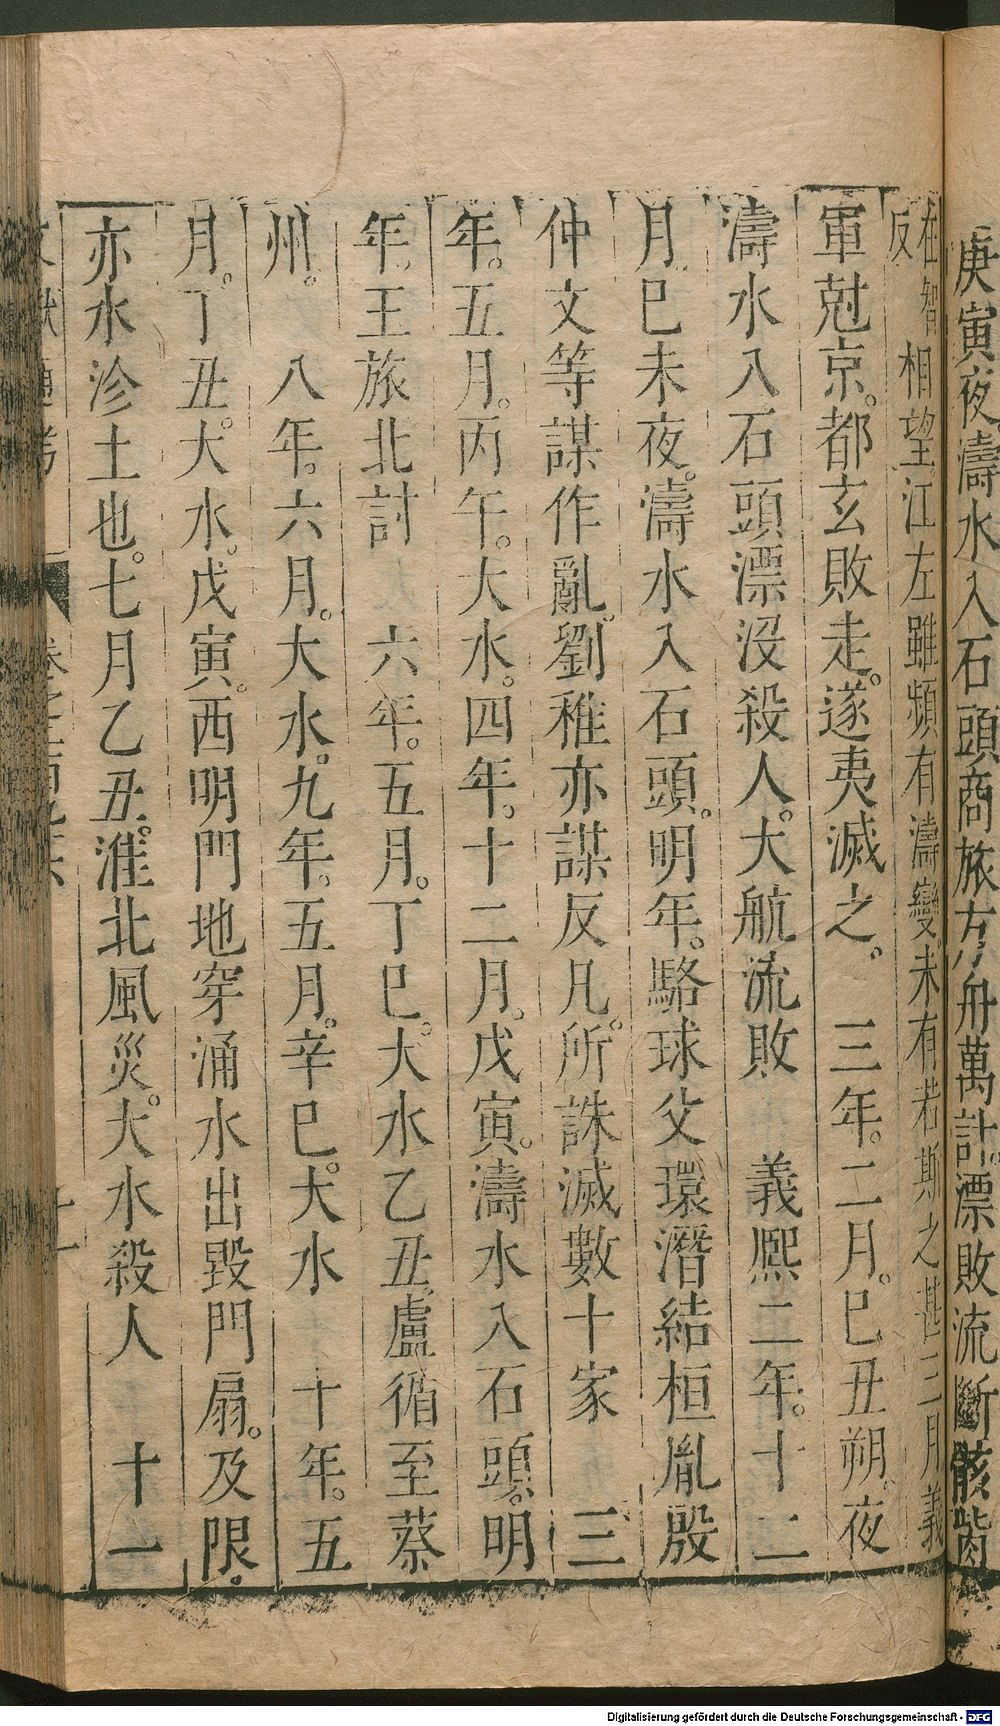 庚寅夜。濤水入石頭商旅方舟萬計。漂敗流斷骸胔
在智相望。江左雖頻有濤變。未有若斯之甚三月義
反
軍尅京。都玄敗走。遂夷滅之。　三年。二月。巳丑朔。夜
濤水入石頭漂沒殺人。大航流敗　義熙二年。十二
月巳未夜。濤水入石頭。明年。駱球父環潛結桓胤殷
仲文等謀作亂。劉稚亦謀反凡。所誅滅數十家　三
年。五月。丙午。大水。四年。十二月。戊寅。濤水入石頭。明
年。王旅北討　六年。五月。丁巳。大水乙丑。盧循至蔡
州。　八年。六月。大水。九年。五月。辛巳。大水　十年。五
月。丁丑。大水。戊寅。西明門地穿涌水出毀門扇。及限。
亦水沴土也。七月乙丑。淮北風災。大水殺人　十一
卷之
十一
Digitalisierung gefördert durch die Deutsche Forschungsgemeinschaft - DFG